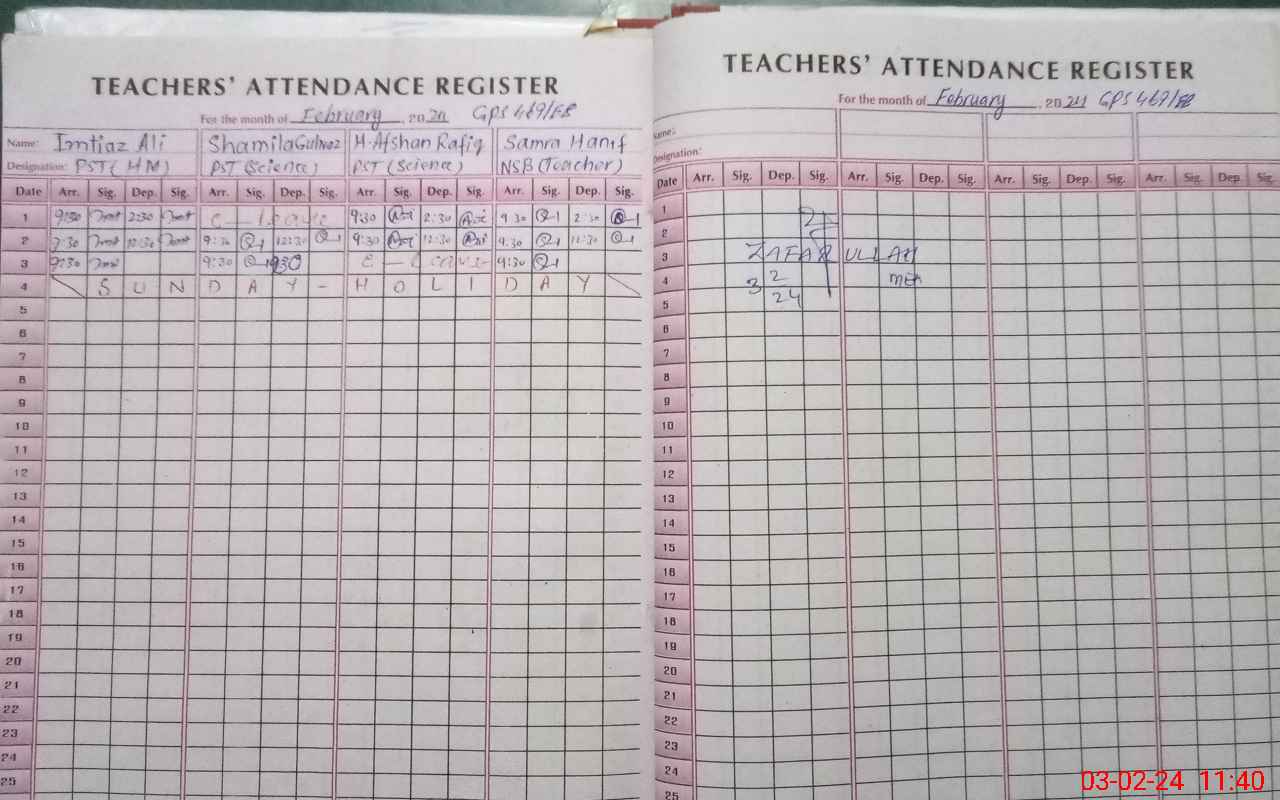 TEACHERS' ATTENDANCE REGISTER
For the month of February, 2024 GPS 469/EB
Name: Imtiaz Ali Shamila Gulnaz H. Afshan Rafiq Samra Hanif
Designation: PST (HM) PST (Science) PST (Science) NSB (Teacher)
Date Arr. Sig. Dep. Sig. Arr. Sig. Dep. Sig. Arr. Sig. Dep. Sig. Arr. Sig. Dep. Sig.
1 9:30 2:30 C - Leave 9:30 2:30 9:30 2:30
2 9:30 12:30 9:30 12:30 9:30 12:30 9:30 12:30
3 9:30 9:30 930 C - Leave 9:30
4 S U N D A Y - H O L I D A Y
5
6
7
8
9
10
11
12
13
14
15
16
17
18
19
20
21
22
23
24
25
TEACHERS' ATTENDANCE REGISTER
For the month of February, 2024 GPS 469/EB
Name:
Designation:
Date Arr. Sig. Dep. Sig. Arr. Sig. Dep. Sig. Arr. Sig. Dep. Sig. Arr. Sig. Dep. Sig.
1
2
3 ZAFAR ULLAH
4 3 2 MEA
5 24
6
7
8
9
10
11
12
13
14
15
16
17
18
19
20
21
22
23
24
25
03-02-24 11:40